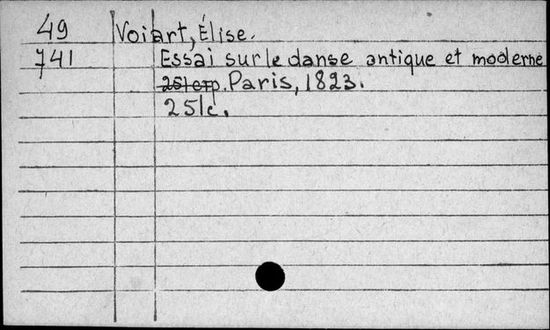 49 Voiart, Élise.
741 Essai sur le danse antique et moderne
Paris, 1823.
251c.